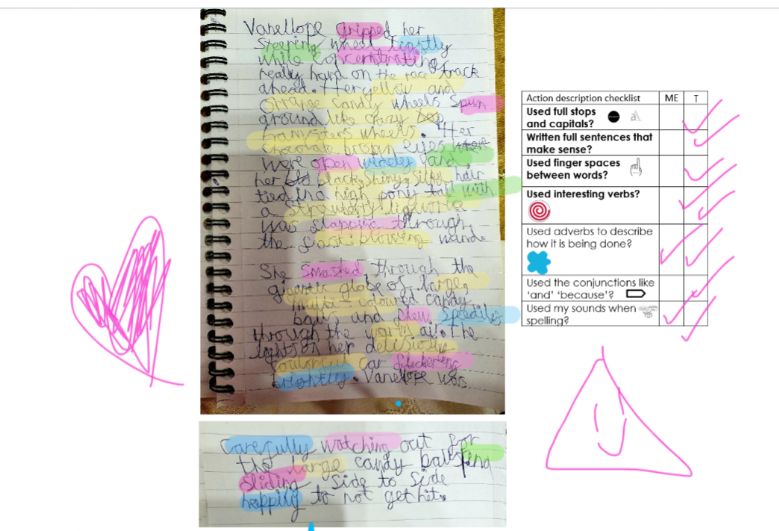 Vanellope gripped her
steering wheel tightly
while concentrating
really hard on the race track
ahead. Her yellow and
orange candy wheels spun
around like crazy
wheels. Her
chocolate brown eyes
were open widely and
her black shiny silky hair
tied in a high pony tail with
a strawberry liquorice
was flapping through
the fast blowing wind.
She smashed through the
gigantic globe of large,
multi-coloured candy
balls and flew speedily
through the all the
lights on her deliciously
colourful car flickering
brightly. Vanellope was
Carefully watching out for
the large candy balls and
sliding side to side
hopping to not get hit.
Action description checklist ME T
Used full stops
and capitals?
Written full sentences that
make sense?
Used finger spaces
between words?
Used interesting verbs?
Used adverbs to describe
how it is being done?
Used the conjunctions like
'and' 'because'?
Used my sounds when
spelling?